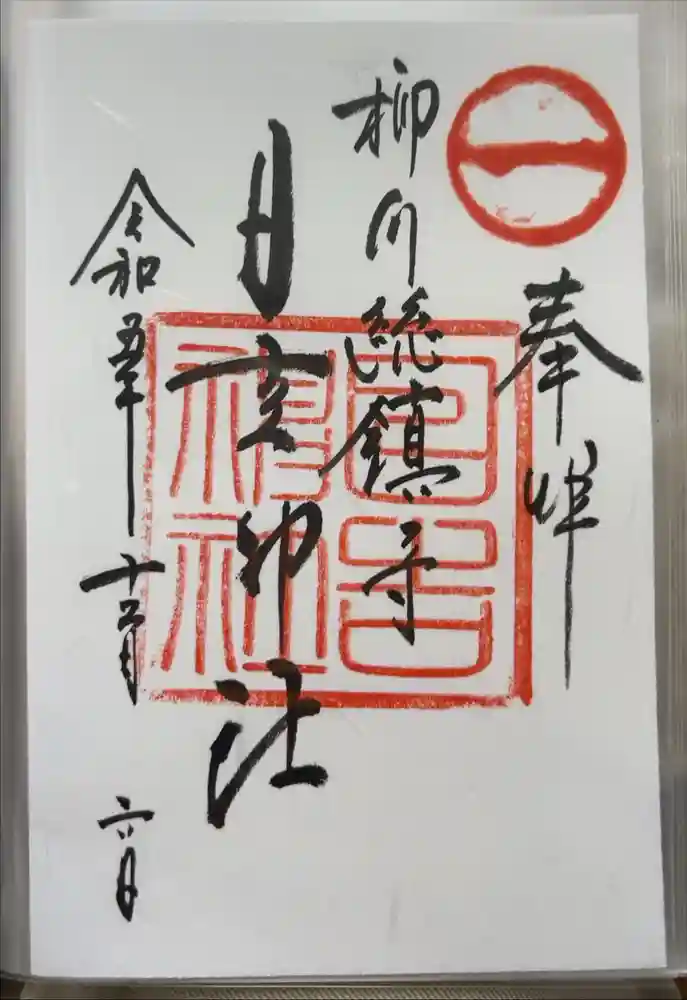 奉拝
柳川総鎮守
日吉神社
令和五年十二月六日
日吉神社